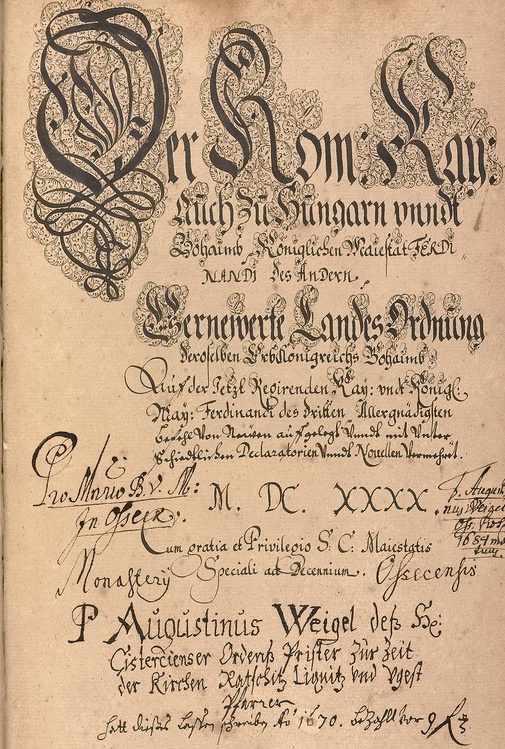 Der Röm: Kay:
Auch Zu Hungarn vnndt
Böhaimb Königlichen Maiestat FERDI
NANDI des Andern
Vernewerte Landes Ordnung
deroselben ErbKönigreichs Böhaimb
Auf der Jetzt Regirenden Kay: vndt Königl:
May: Ferdinandt des dritten Allergnädigsten
befehl Von Newen auffgelegt Vnndt mit Unter
schiedlichen Declaratorien Vnndt Nouellen Vermehrt.
Pro Mnrio B. V. M:
In Osseck.
M. DC. XXXX.
F. Augusti
nus Weigel
Oss: Prof:
1684
Cum gratia et Privilegio S. C. Maiestatis
Monastery Speciali ad Decennium. Ossecensis
P Augustinus Weigel deß He:
Cistercienser Ordenß Prister Zur Zeit
der Kirchen Ratschitz Liquitz vnd Vgest
Pfarrer
hatt dieses lassen schreiben Ao 1670. bezahlt vor 9